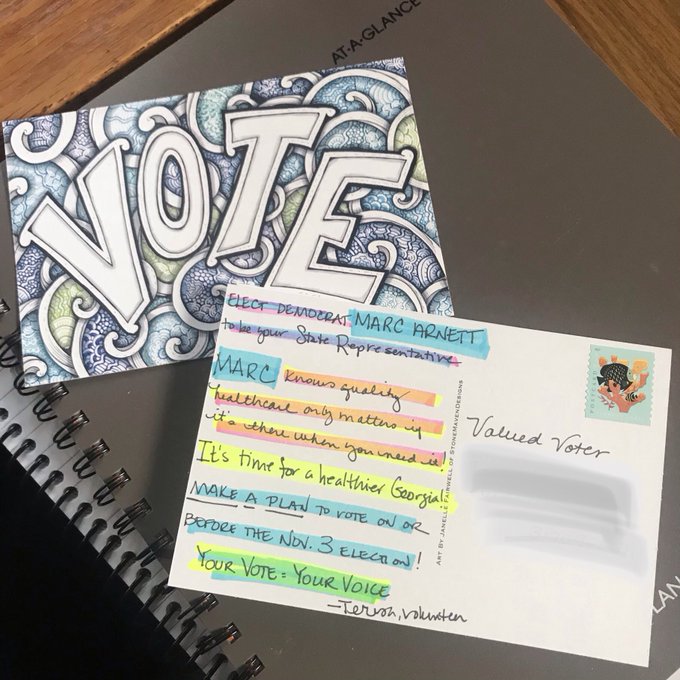 AT-A-GLANCE
VOTE
ELECT DEMOCRAT MARC ARNETT
to be your State Representative
MARC knows quality
healthcare only matters if
it's there when you need it!
It's time for a healthier Georgia!
MAKE A PLAN TO VOTE ON OR
BEFORE THE NOV. 3 ELECTION!
YOUR VOTE = YOUR VOICE
-Teresa, volunteer
ART BY JANELLE FAIRWELL OF STONEMAVENDESIGNS
POSTCARD
Valued Voter
GLAN